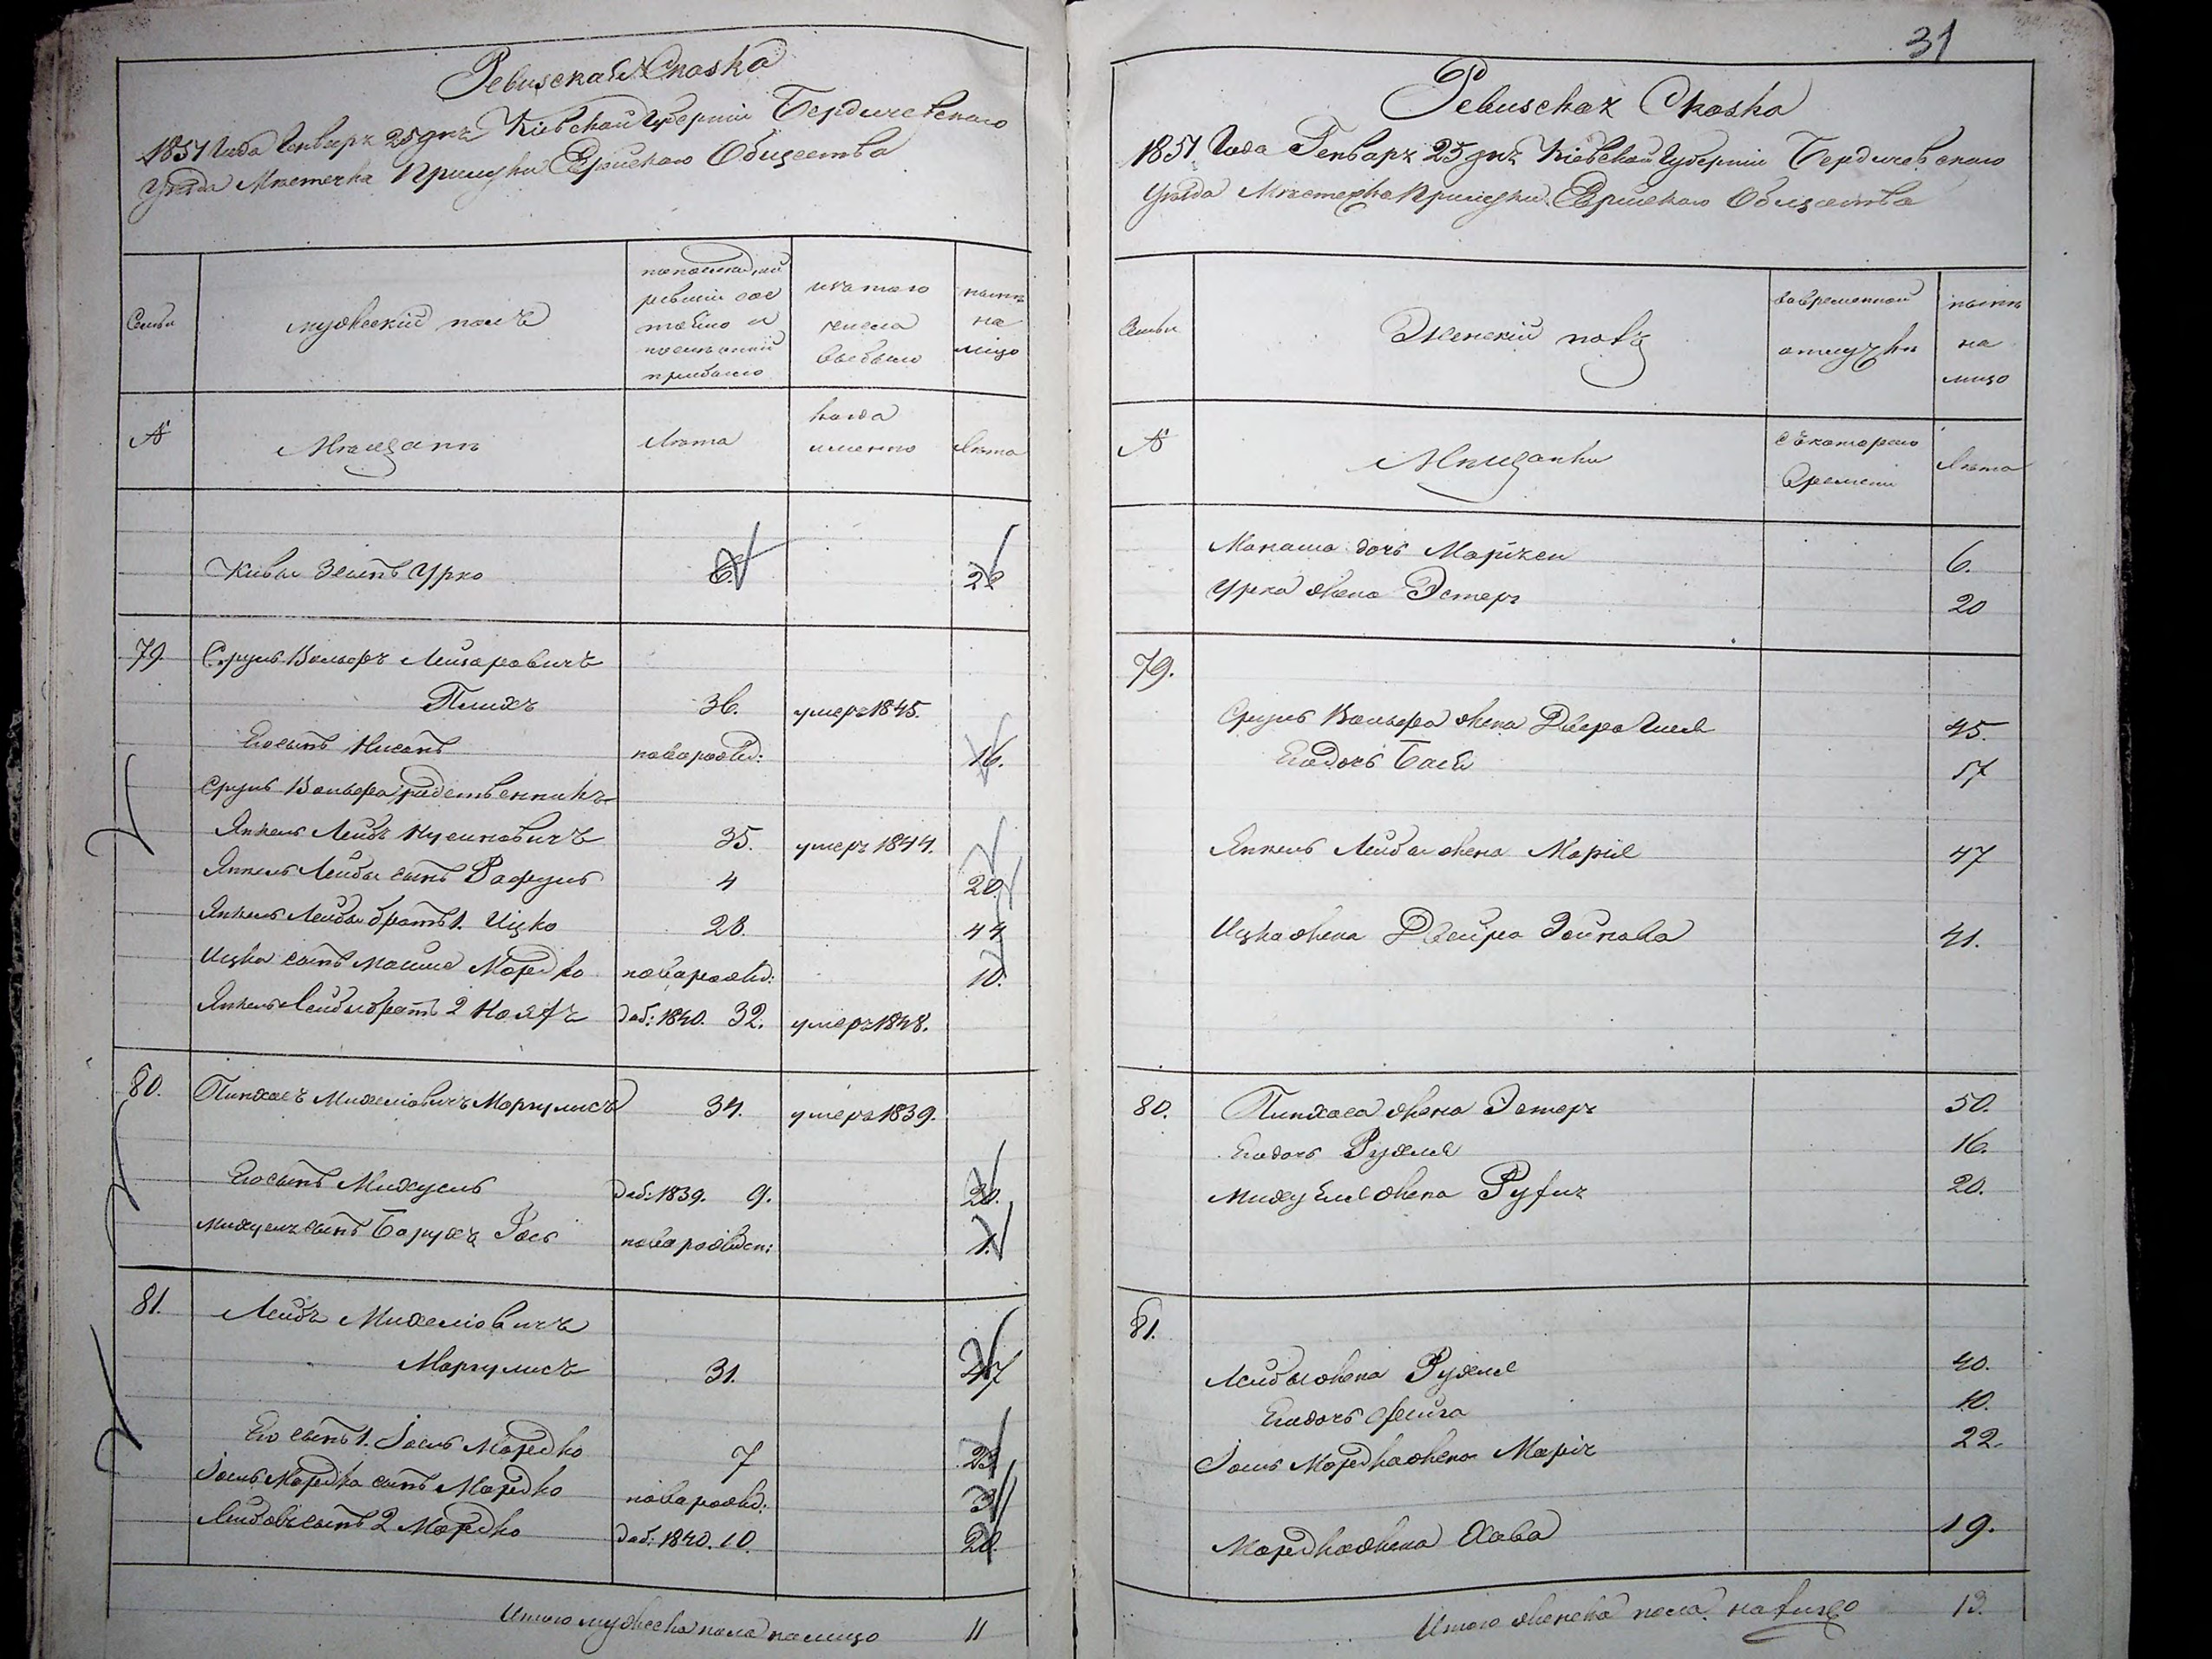 Ревизская Сказка
1851 Года Генваря 25 дня Кіевской Губерніи Бердичевскаго
Уѣзда Мѣстечка Прилуки Еврейскаго Общества
Семьи
мужескій полъ
по последней
ревизіи сос
тояло и
после оной
прибыло
изъ того
числа
выбыло
нынѣ
на
лицо
№
Мѣщане
Лѣта
когда
именно
Лѣта
Кивы Зсынъ Урко 6. 22
79. Сруль Вольфъ Лейзаровичъ
36. умеръ 1845.
Его сынъ Нисонъ новорожд: 16.
Сруль Вольфа родственникъ
Янкель Лейбъ Нусиновичъ 35. умеръ 1844.
Янкель Лейбы сынъ Рафуль 4 20
Янкель Лейбы братъ 1. Ицко 28. 44
Ицка сынъ Мошко Мордко новорожд: 10.
Янкель Лейбы братъ 2 доб: 1840. 32. умеръ 1848.
80. Пинхасъ Михелiовичъ Маргулисъ 34. умеръ 1839.
Его сынъ Михуель доб: 1839. 9. 20.
Михуеля сынъ Барухъ новорожден: 1.
81. Лейбъ Михелiовичъ
Маргулисъ 31. 47
Его сынъ 1. Іось Мордко 7 23
Іось Мордка сынъ Мордко новорожд: 3
Лейбовъ сынъ 2 Мордко доб: 1840. 10. 20.
Итого мужеска пола на лицо 11
31
Ревизская Сказка
1851 Года Генваря 25 дня Кіевской Губерніи Бердичевскаго
Уѣзда Мѣстечка Прилуки Еврейскаго Общества
Семьи
Женскій полъ
во временной
отлучкѣ
нынѣ
на
лицо
№
Мѣщанки
съ котораго
времени
Лѣта
дочь 6.
Урка жена Эстеръ 20
79.
Сруль Вольфа жена Двера 45.
Его дочь Бася 17
Янкель Лейбы жена Марія 47
Ицка жена Двейра 41.
80. Пинхаса жена Эстеръ 50.
Его дочь Рухля 16.
Михуеля жена 20.
81.
Лейбы жена Рухля 40.
Его дочь Фейга 10.
Іось Мордка жена Марія 22.
Мордка жена Хава 19.
Итого женска пола на лицо 13.